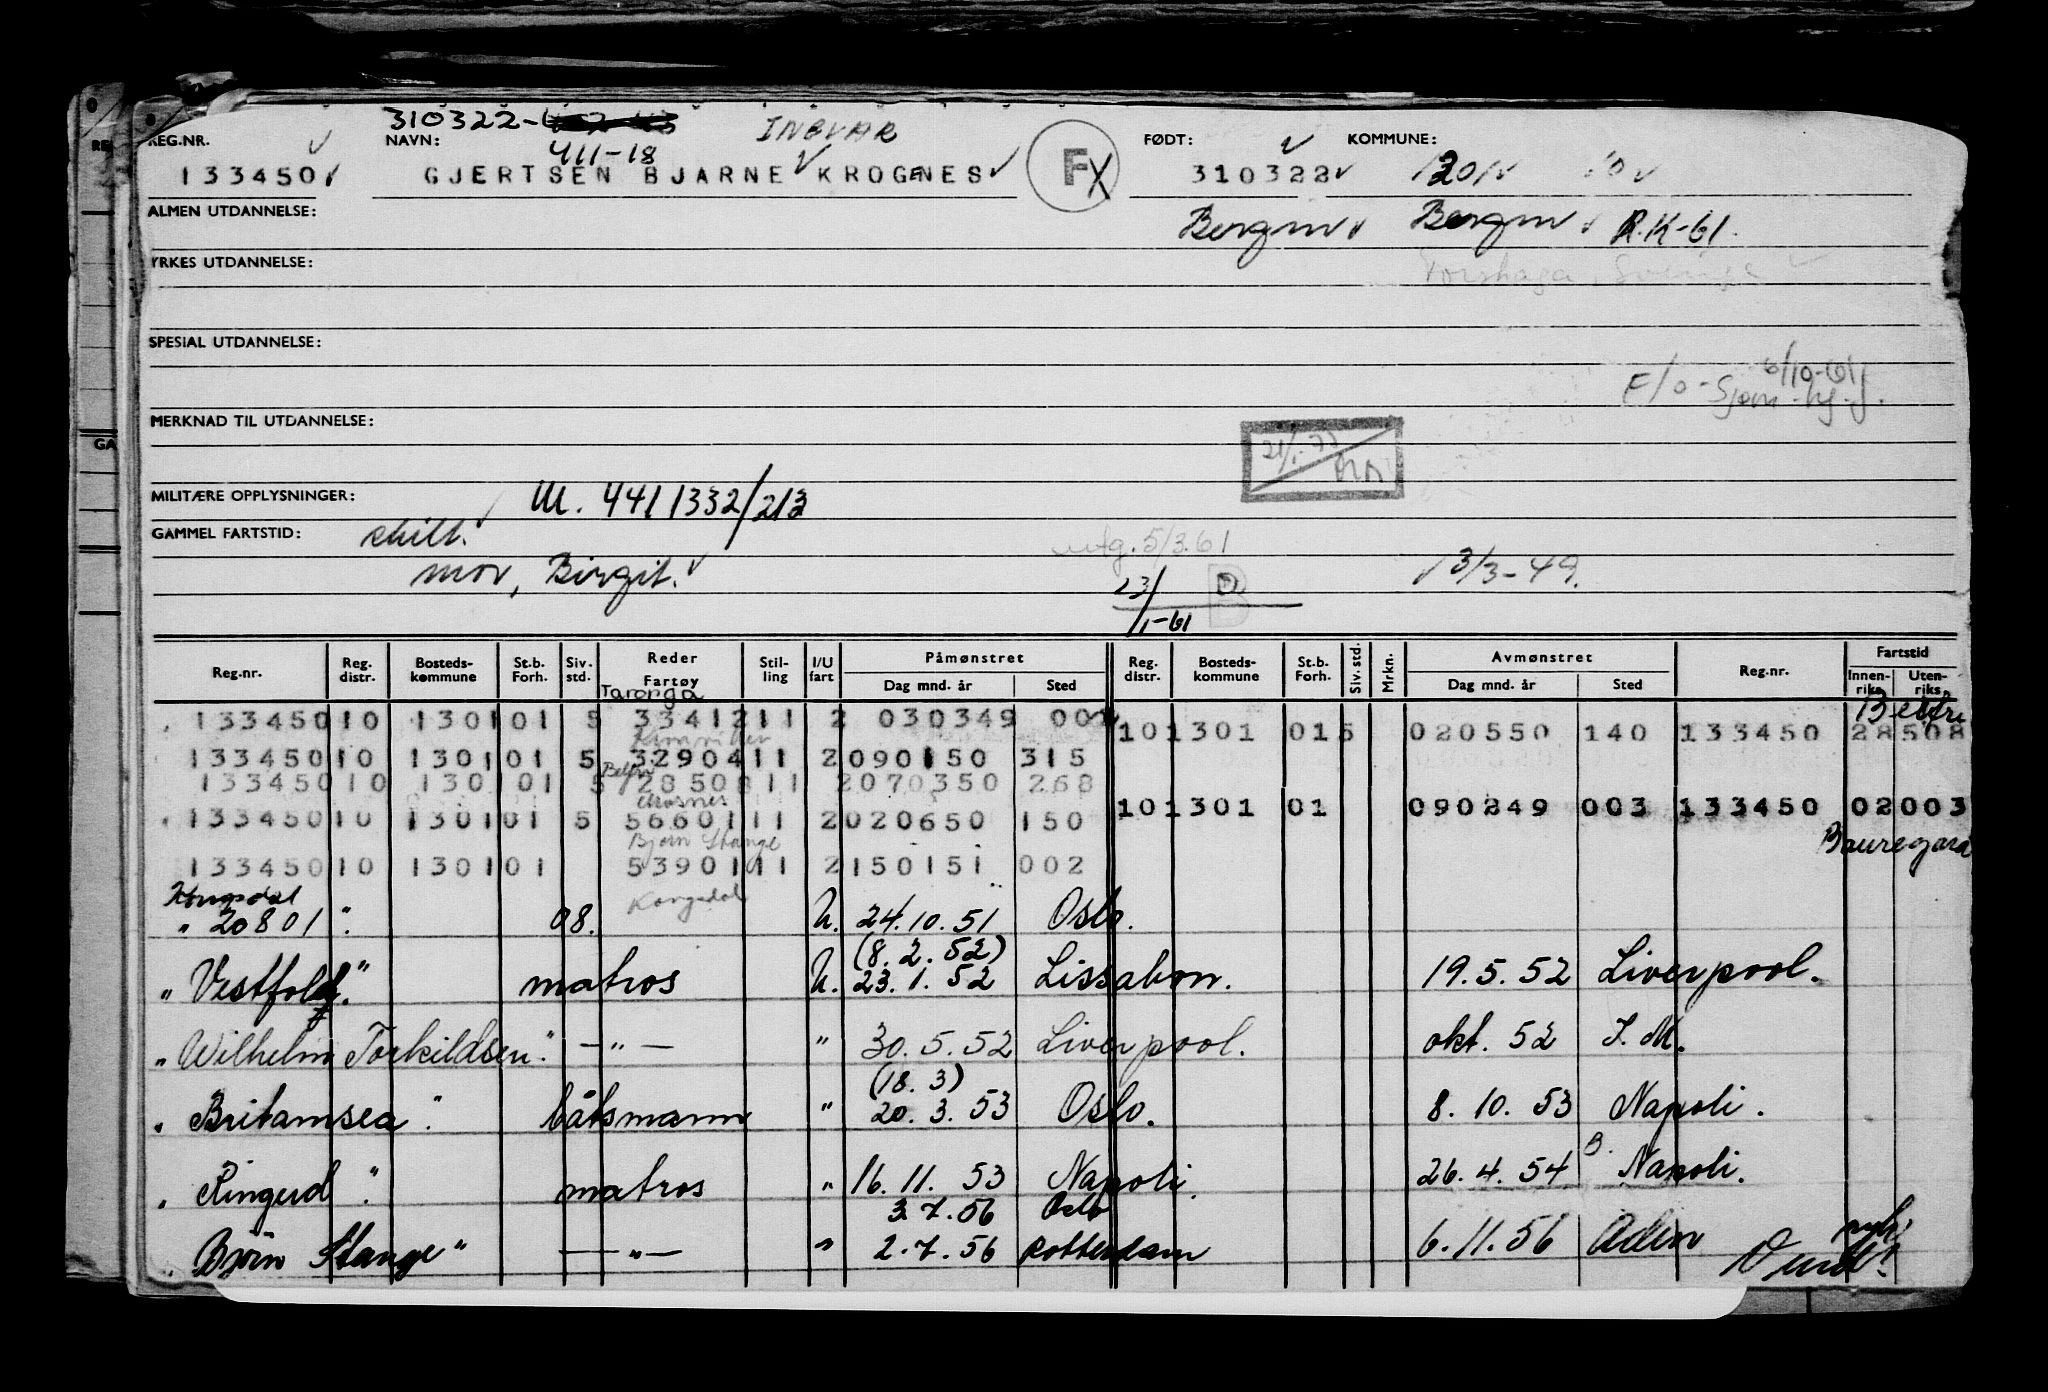 310322-
INGVAR
REG.NR. NAVN: FØDT: KOMMUNE:
411-18
133450 GJERTSEN BJARNE KROGNES F 310322 1301
ALMEN UTDANNELSE: Bergen Bergen R.K-61.
YRKES UTDANNELSE:
Forshaga, Sverige
SPESIAL UTDANNELSE:
6/10-61
F/o - Sjøm.
MERKNAD TIL UTDANNELSE:
MILITÆRE OPPLYSNINGER: M. 4411332/213
GAMMEL FARTSTID: skilt.
utg. 5/3.61
mor, Birgit. 23/1-61 D 3/3-49.
Reg.nr. Reg. distr. Bosteds-kommune St.b. Forh. Siv. std. Reder Fartøy Stil-ling I/U fart Påmønstret Dag mnd. år Sted Reg. distr. Bosteds-kommune St.b. Forh. Siv. std. Mrkn. Avmønstret Dag mnd. år Sted Reg.nr. Fartstid Innen-riks Uten-riks
Taronga
133450 10 1301 01 5 33412 11 2 030349 001 10 1301 01 5 020550 140 133450 28508
133450 10 1301 01 5 32904 11 2 090150 315
133450 10 130 01 5 28508 11 2 070350 268
10 1301 01 090249 003 133450 02003
133450 10 1301 01 5 56601 11 2 020650 150
Bjørn Stange
Bauregard
133450 10 1301 01 53901 11 2 150151 002
Kongsdal Kongsdal
" 20801 " 08. U. 24.10.51 Oslo.
(8.2.52)
" Vestfold. " matros U. 23.1.52 Lissabon. 19.5.52 Liverpool.
" Wilhelm Torkildsen. " — " — " 30.5.52 Liverpool. okt. 52 I.M.
(18.3)
" Britamsea " båtsmann " 20.3.53 Oslo. 8.10.53 Napoli.
" Ringerd " matros " 16.11.53 Napoli. 26.4.54 Napoli.
3.7.56 Oslo
" Bjørn Stange " — " — " 2.7.56 Rotterdam 6.11.56 Aden